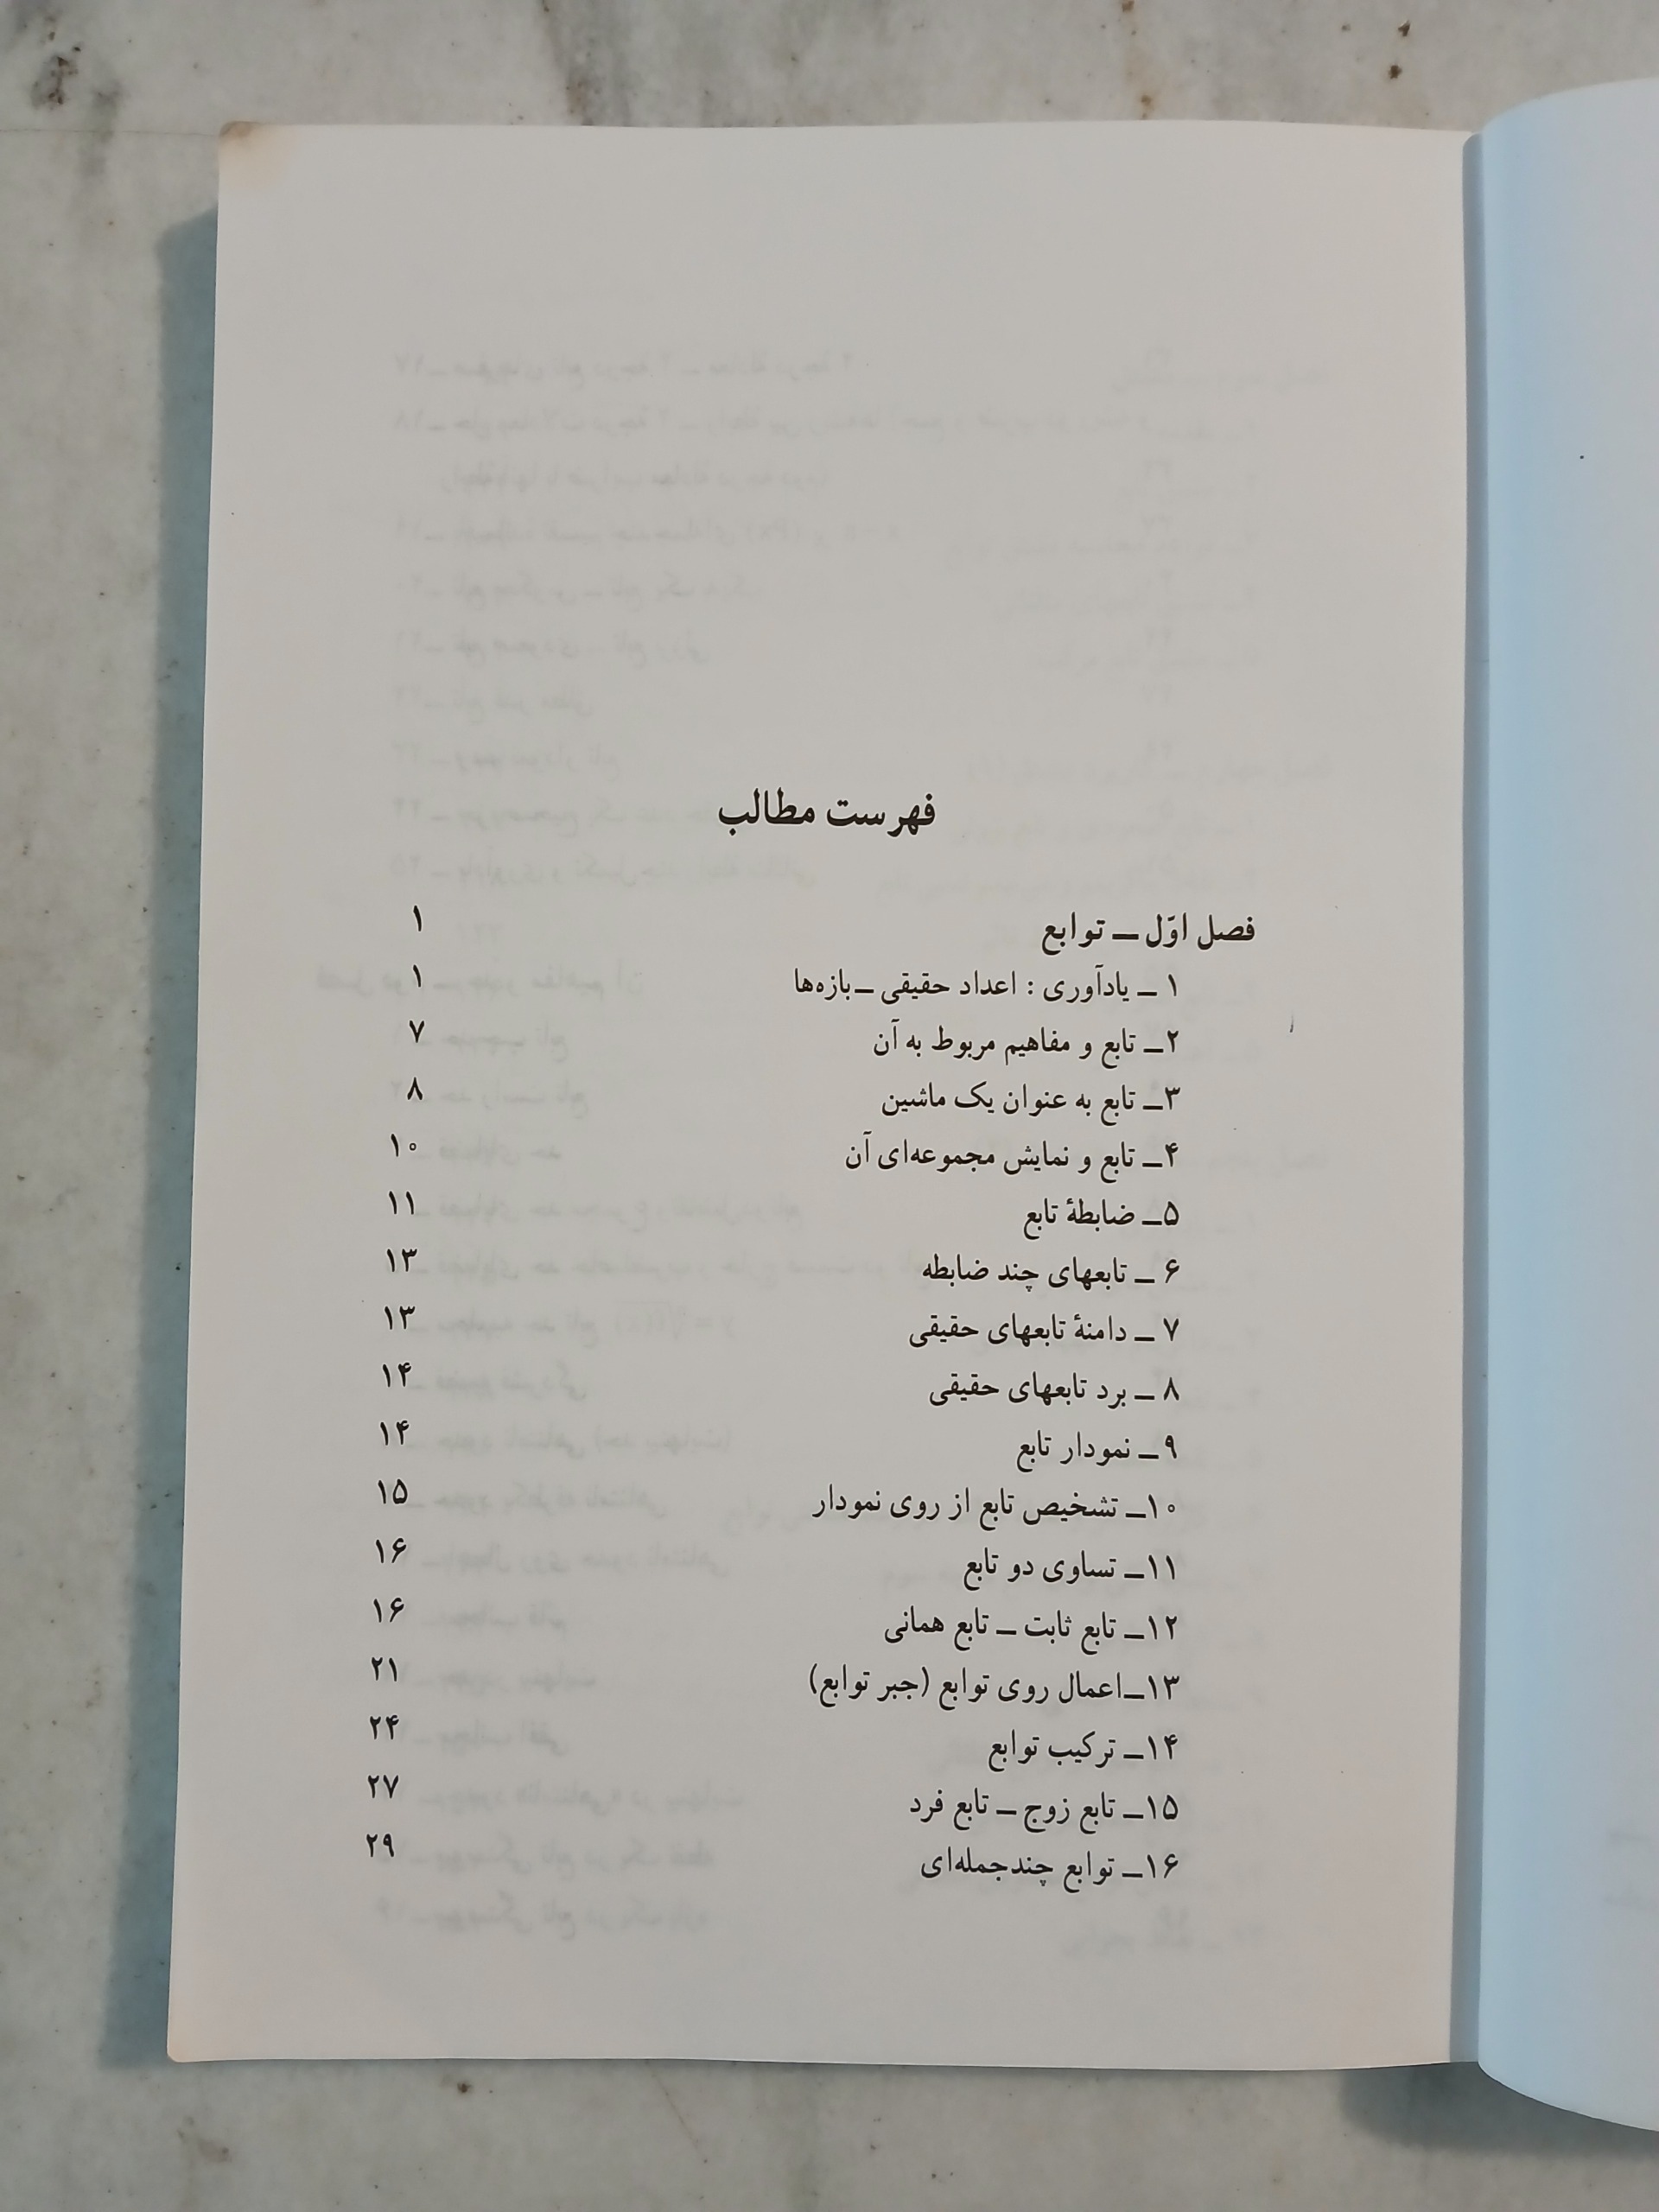 فهرست مطالب
فصل اوّل ــ توابع ۱
۱ ــ یادآوری : اعداد حقیقی ــ بازه‌ها ۱
۲ــ تابع و مفاهیم مربوط به آن ۷
۳ــ تابع به عنوان یک ماشین ۸
۴ــ تابع و نمایش مجموعه‌ای آن ۱۰
۵ــ ضابطهٔ تابع ۱۱
۶ ــ تابعهای چند ضابطه ۱۳
۷ ــ دامنهٔ تابعهای حقیقی ۱۳
۸ ــ برد تابعهای حقیقی ۱۴
۹ــ نمودار تابع ۱۴
۱۰ــ تشخیص تابع از روی نمودار ۱۵
۱۱ــ تساوی دو تابع ۱۶
۱۲ــ تابع ثابت ــ تابع همانی ۱۶
۱۳ــ اعمال روی توابع (جبر توابع) ۲۱
۱۴ــ ترکیب توابع ۲۴
۱۵ــ تابع زوج ــ تابع فرد ۲۷
۱۶ــ توابع چندجمله‌ای ۲۹